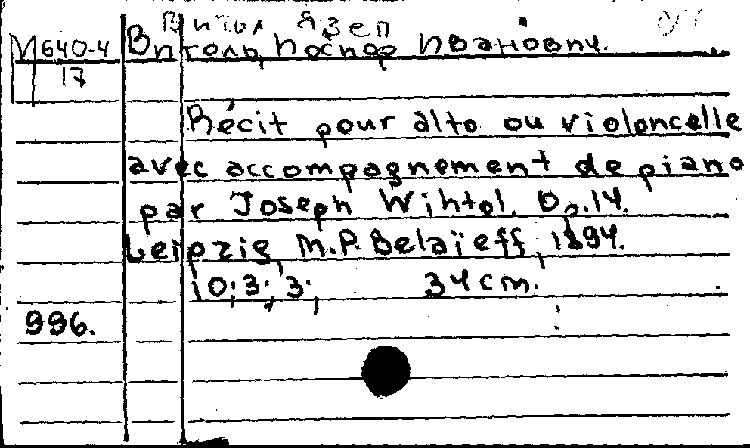 Витол Язеп
М640-4 Витоль, Иосиф Иванович.
17
Récit pour alto ou violoncelle
avec accompagnement de piano
par Joseph Wihtol. Op.14.
Leipzig, M.P. Belaïeff, 1894.
10; 3; 3; 34 cm.
996.